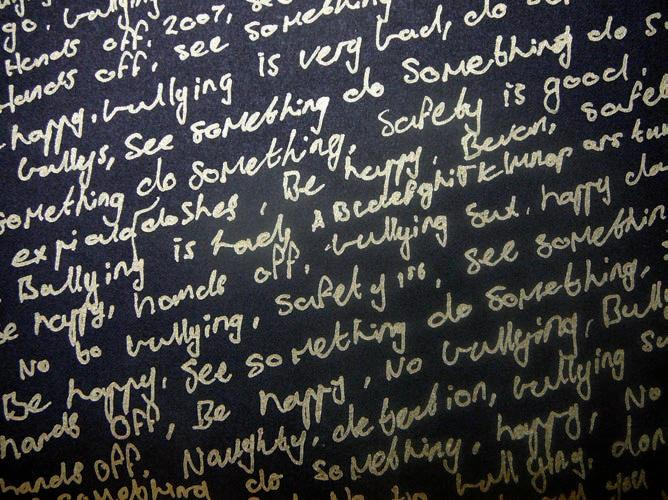 go. bullying
Hands off. 2007, see
Hands off, see something
happy, bullying is very bad, do
bullys, see something do something do s
something do something, Safety is good,
expiardoshes, Be happy, safe
Bullying is ABcdefghiJKlmnop ars
be happy, hands off, bullying sux, happy da
No to bullying, safety 1st, see something
Be happy, see something do something,
hands off, Be happy, No bullying, Bull
hands off, Naughty, detection, bullying su
something do something, happy, No
bullying, don